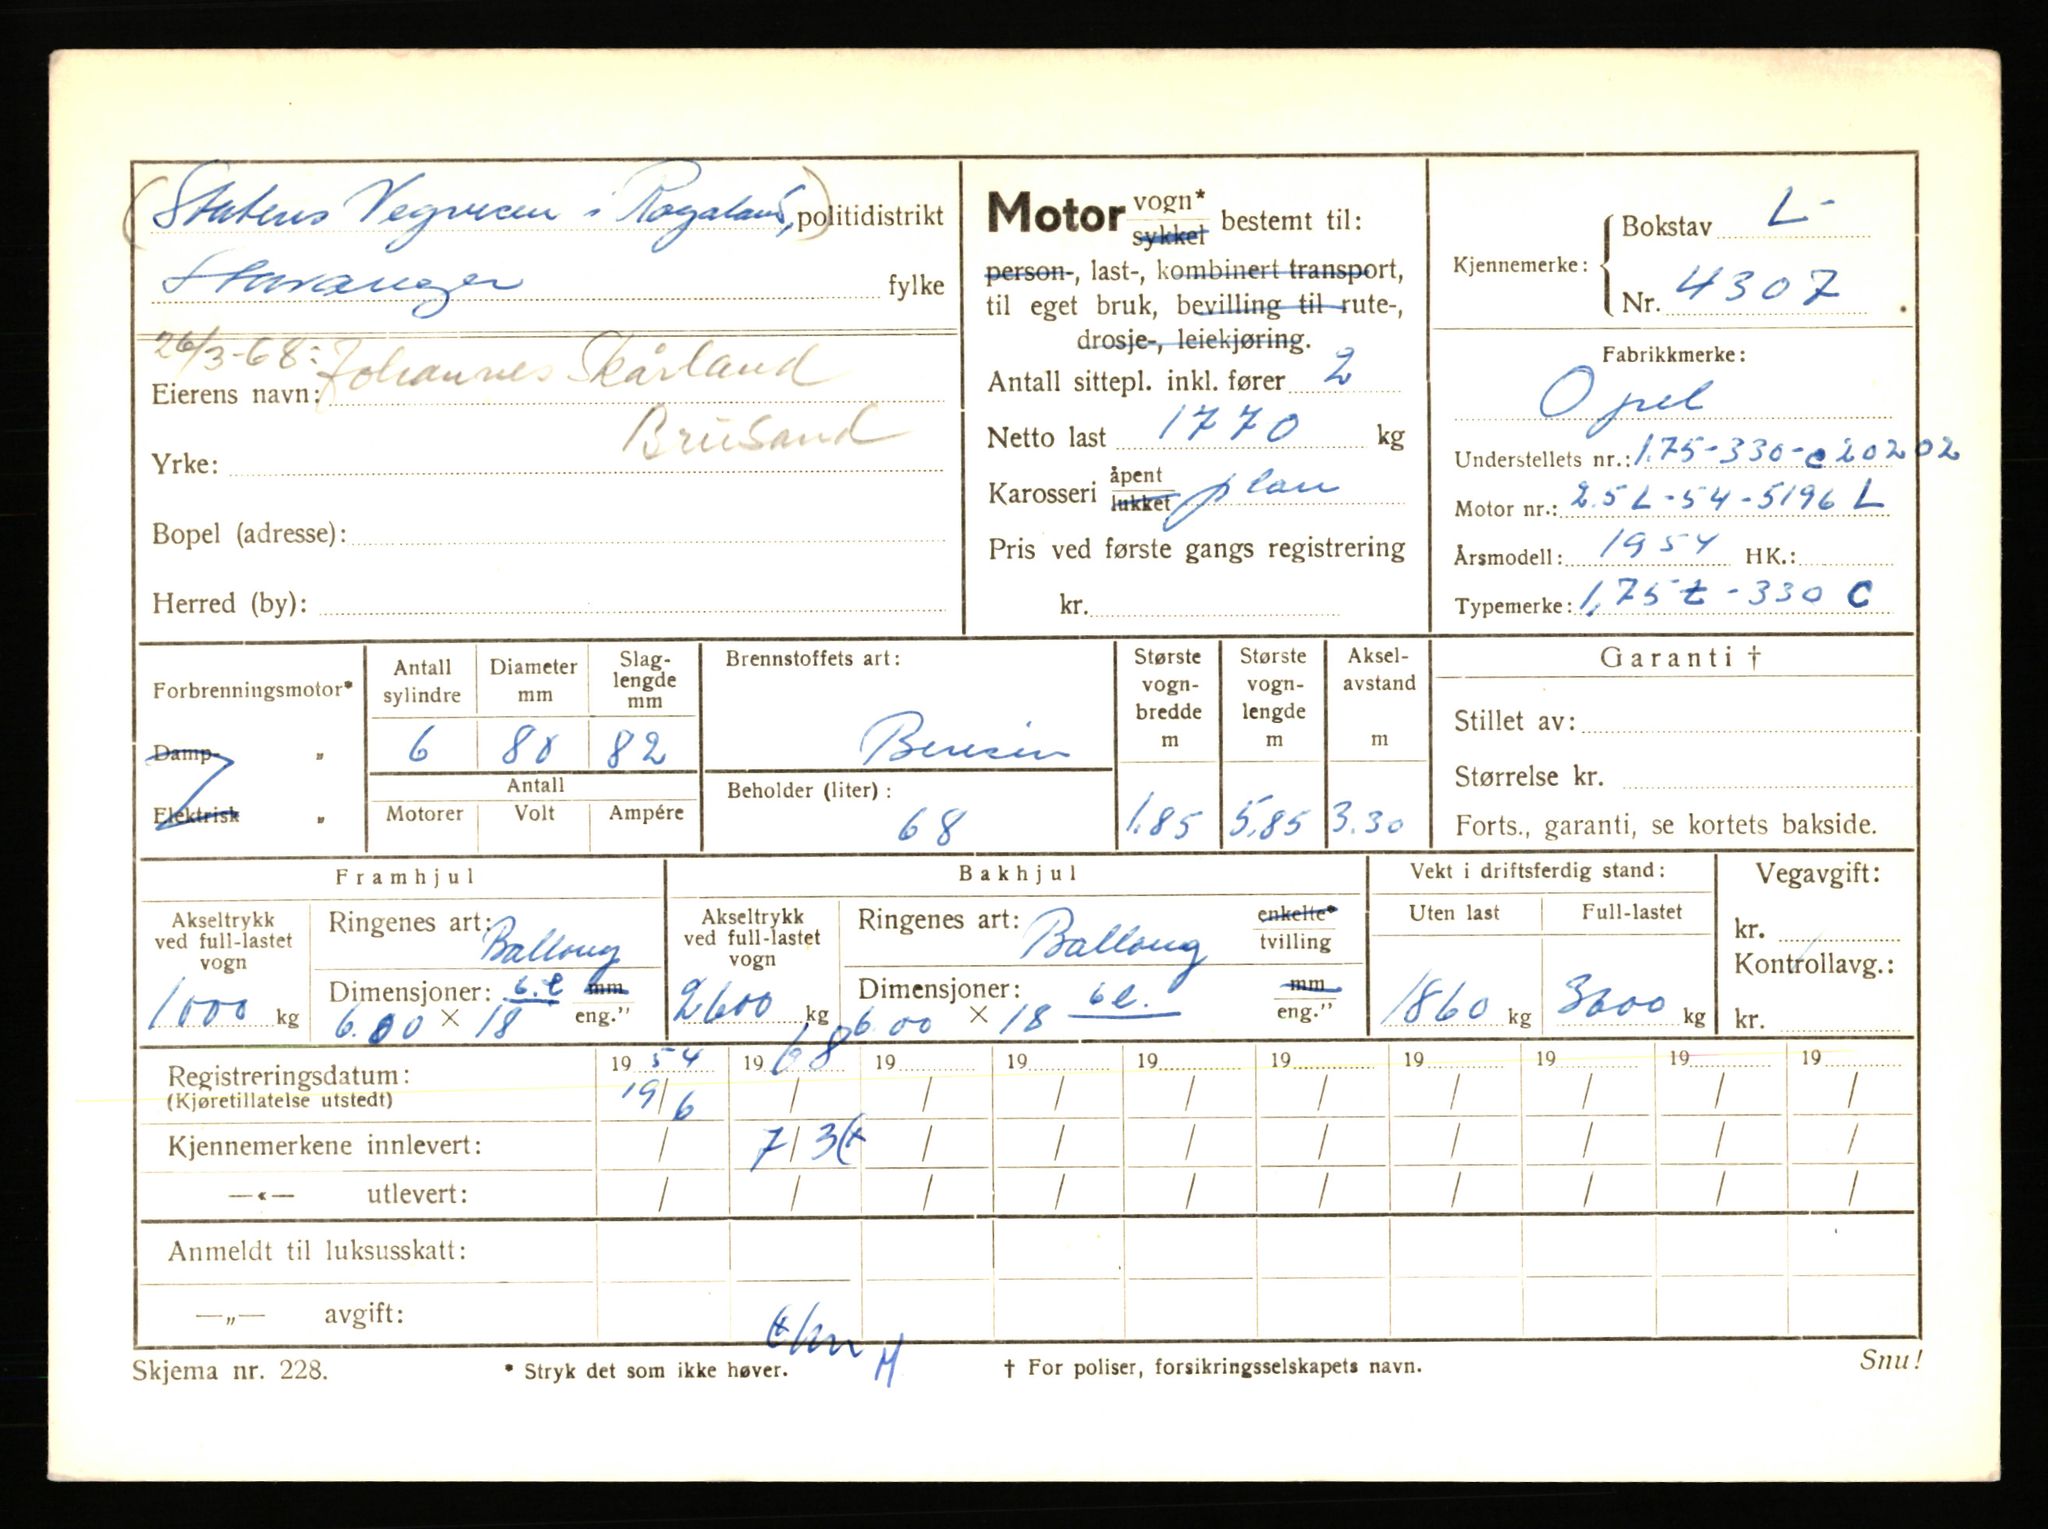 (Statens Vegvesen i Rogaland,) politidistrikt
Stavanger fylke
26/3-68: Johannes Skårland
Eierens navn:
Brusand
Yrke:
Bopel (adresse):
Herred (by):
Motor vogn* sykkel bestemt til:
person-, last-, kombinert transport,
til eget bruk, bevilling til rute-,
drosje-, leiekjøring.
Antall sittepl. inkl. fører 2
Netto last 1770 kg
Karosseri åpent lukket plan
Pris ved første gangs registrering
kr.
Kjennemerke: Bokstav L-
Nr. 4307
Fabrikkmerke:
Opel
Understellets nr.: 1.75-330-c20202
Motor nr.: 2.5L-54-5196 L
Årsmodell: 1954 HK.:
Typemerke: 1,75t-330 C
Forbrenningsmotor*
Damp- „
Elektrisk „
Antall sylindre
6
Diameter mm
80
Slag-lengde mm
82
Antall
Motorer Volt Ampére
Brennstoffets art:
Bensin
Beholder (liter):
68
Største vogn-bredde m
1.85
Største vogn-lengde m
5,85
Aksel-avstand m
3.30
Garanti †
Stillet av:
Størrelse kr.
Forts., garanti, se kortets bakside.
Framhjul
Akseltrykk ved full-lastet vogn
1000 kg
Ringenes art: Ballong
Dimensjoner: 6.l mm
6.00 × 18 eng."
Bakhjul
Akseltrykk ved full-lastet vogn
2600 kg
Ringenes art: Ballong enkelte* tvilling
Dimensjoner: 6l. mm
6.00 × 18 eng."
Vekt i driftsferdig stand:
Uten last Full-lastet
1860 kg 3600 kg
Vegavgift:
kr.
Kontrollavg.:
kr.
Registreringsdatum: 19 54 19 68 19 19 19 19 19 19 19 19
(Kjøretillatelse utstedt) 19/6 / / / / / / / / /
Kjennemerkene innlevert: / 7/3 / / / / / / / /
—«— utlevert: / / / / / / / / / /
Anmeldt til luksusskatt:
—„— avgift:
Skjema nr. 228.
* Stryk det som ikke høver.
† For poliser, forsikringsselskapets navn.
Snu!